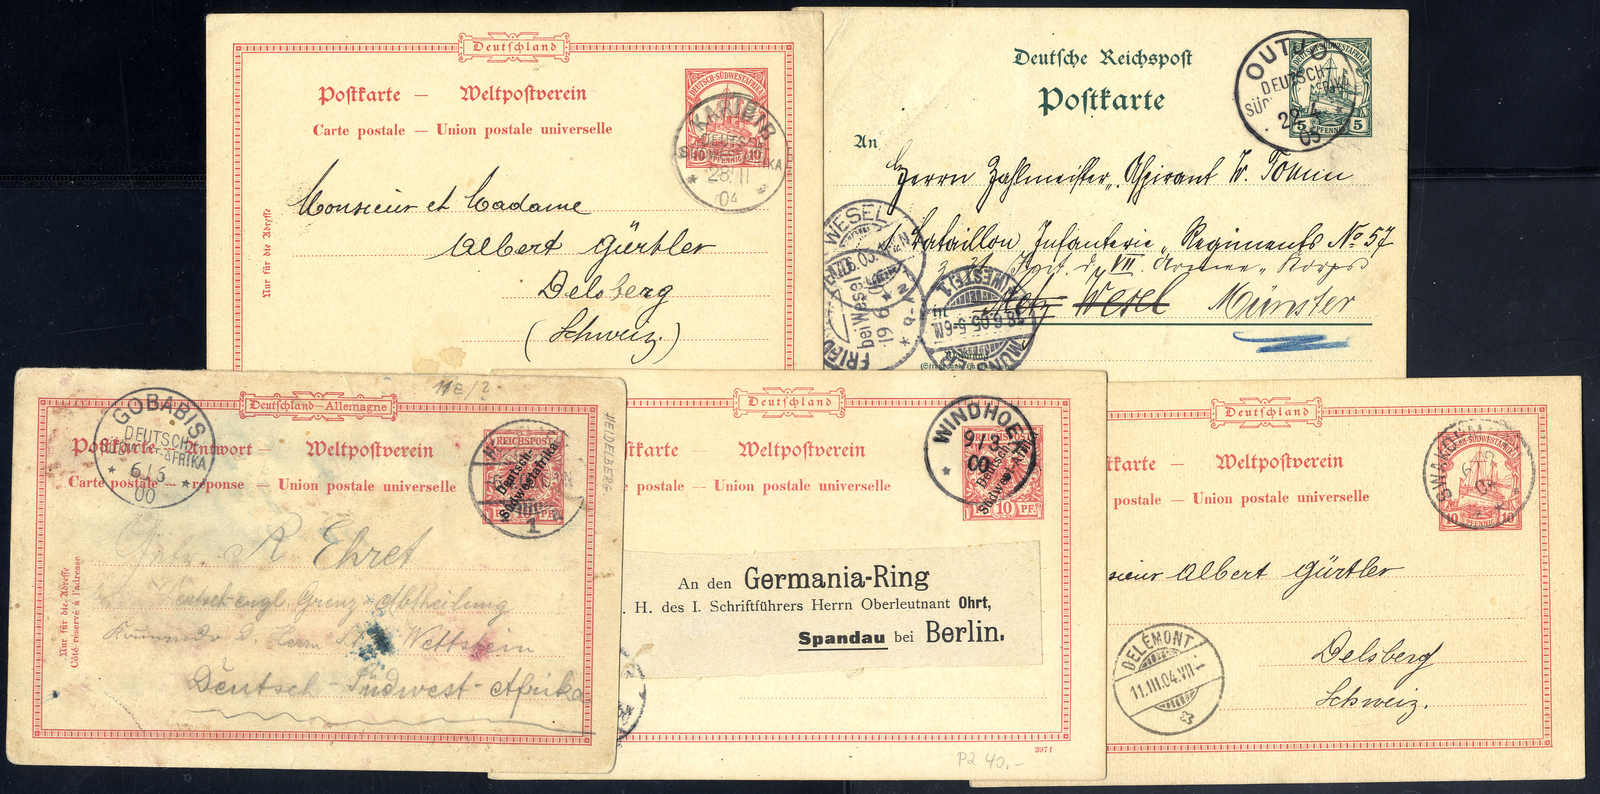 Deutschland
Postkarte — Weltpostverein
Carte postale — Union postale universelle
Nur für die Adresse
DEUTSCH-SÜDWESTAFRIKA
10 PFENNIG 10
KARIBIB
28/11
04
Monsieur et Madame
Albert Gürtler
Delsberg
(Schweiz)
Deutsche Reichspost
Postkarte
5 PFENNIG 5
DEUTSCH-
28/4
05
An
Herrn Zahlmeister-Aspirant W.
1. Bataillon Infanterie-Regiments No 57
VII. Armee-Korps
Wesel Münster
WESEL
bei Wesel
Deutschland—Allemagne
Postkarte — Antwort — Weltpostverein
Carte postale — réponse — Union postale universelle
Nur für die Adresse
Côté réservé à l'adresse
11E/2
HEIDELBERG
GOBABIS
DEUTSCH-
6/5
00
REICHSPOST
Deutsch-
Südwestafrika
1
R. Ehret
Deutsch-engl. Grenz-Abtheilung
Wettstein
Deutsch-Südwest-Afrika
Deutschland
Postkarte — Weltpostverein
postale — Union postale universelle
WINDHOEK
9/3
00
REICHSPOST
10 PF.
An den Germania-Ring
H. des I. Schriftführers Herrn Oberleutnant Ohrt,
Spandau bei Berlin.
397f
P2 40,-
Deutschland
tkarte — Weltpostverein
postale — Union postale universelle
10 PFENNIG 10
sieur Albert Gürtler
Delsberg
Schweiz.
DELÉMONT
11.III.04.VII